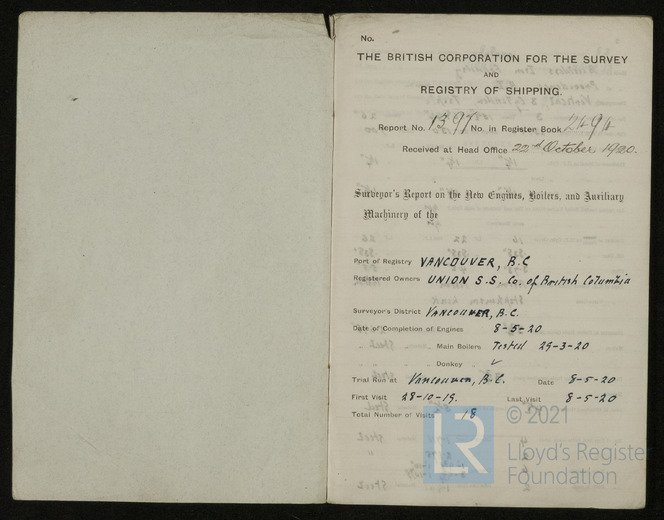 No.
THE BRITISH CORPORATION FOR THE SURVEY
AND
REGISTRY OF SHIPPING.
Report No. 1397 No. in Register Book 2494
Received at Head Office 22nd October 1920.
Surveyor's Report on the New Engines, Boilers, and Auxiliary
Machinery of the
Port of Registry VANCOUVER, B.C
Registered Owners UNION S.S. Co. of British Columbia
Surveyor's District VANCOUVER, B.C.
Date of Completion of Engines 8-5-20
Main Boilers Tested 29-3-20
Donkey ✓
Trial Run at Vancouver, B.C. Date 8-5-20
First Visit 28-10-19. Last Visit 8-5-20
Total Number of Visits 18
LR
© 2021
Lloyd's Register
Foundation